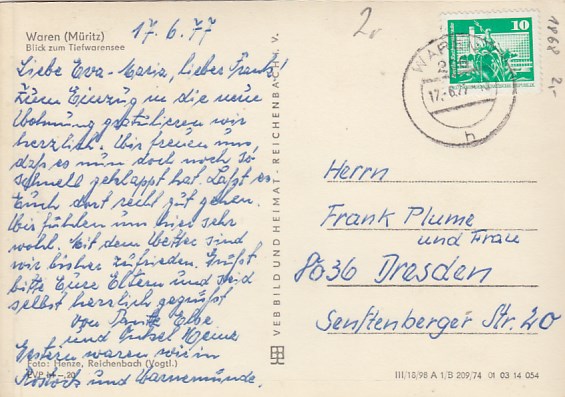 Waren (Müritz)
Blick zum Tiefwarensee
17.6.77
Liebe Eva-Maria, lieber Frank!
Zum Einzug in die neue
Wohnung gratulieren wir
herzlich. Wir freuen uns,
daß es nun doch noch so
schnell geklappt hat. Laßt es
Euch dort recht gut gehen.
Wir fühlen uns hier sehr
wohl. Mit dem Wetter sind
wir bisher zufrieden. Grüßt
bitte Eure Eltern und seid
selbst herzlich gegrüßt
von Tante Else
und Onkel Heine
Gestern waren wir in
Foto: Henze, Reichenbach (Vogtl.)
Rostock und Warnemünde.
VEB BILD UND HEIMAT · REICHENBACH i. V.
2,-
10
WAREN
17.-6.77
h
1868
2,-
Herrn
Frank Plume
und Frau
8036 Dresden
Senftenberger Str. 20
III/18/98 A 1/B 209/74 01 03 14 054